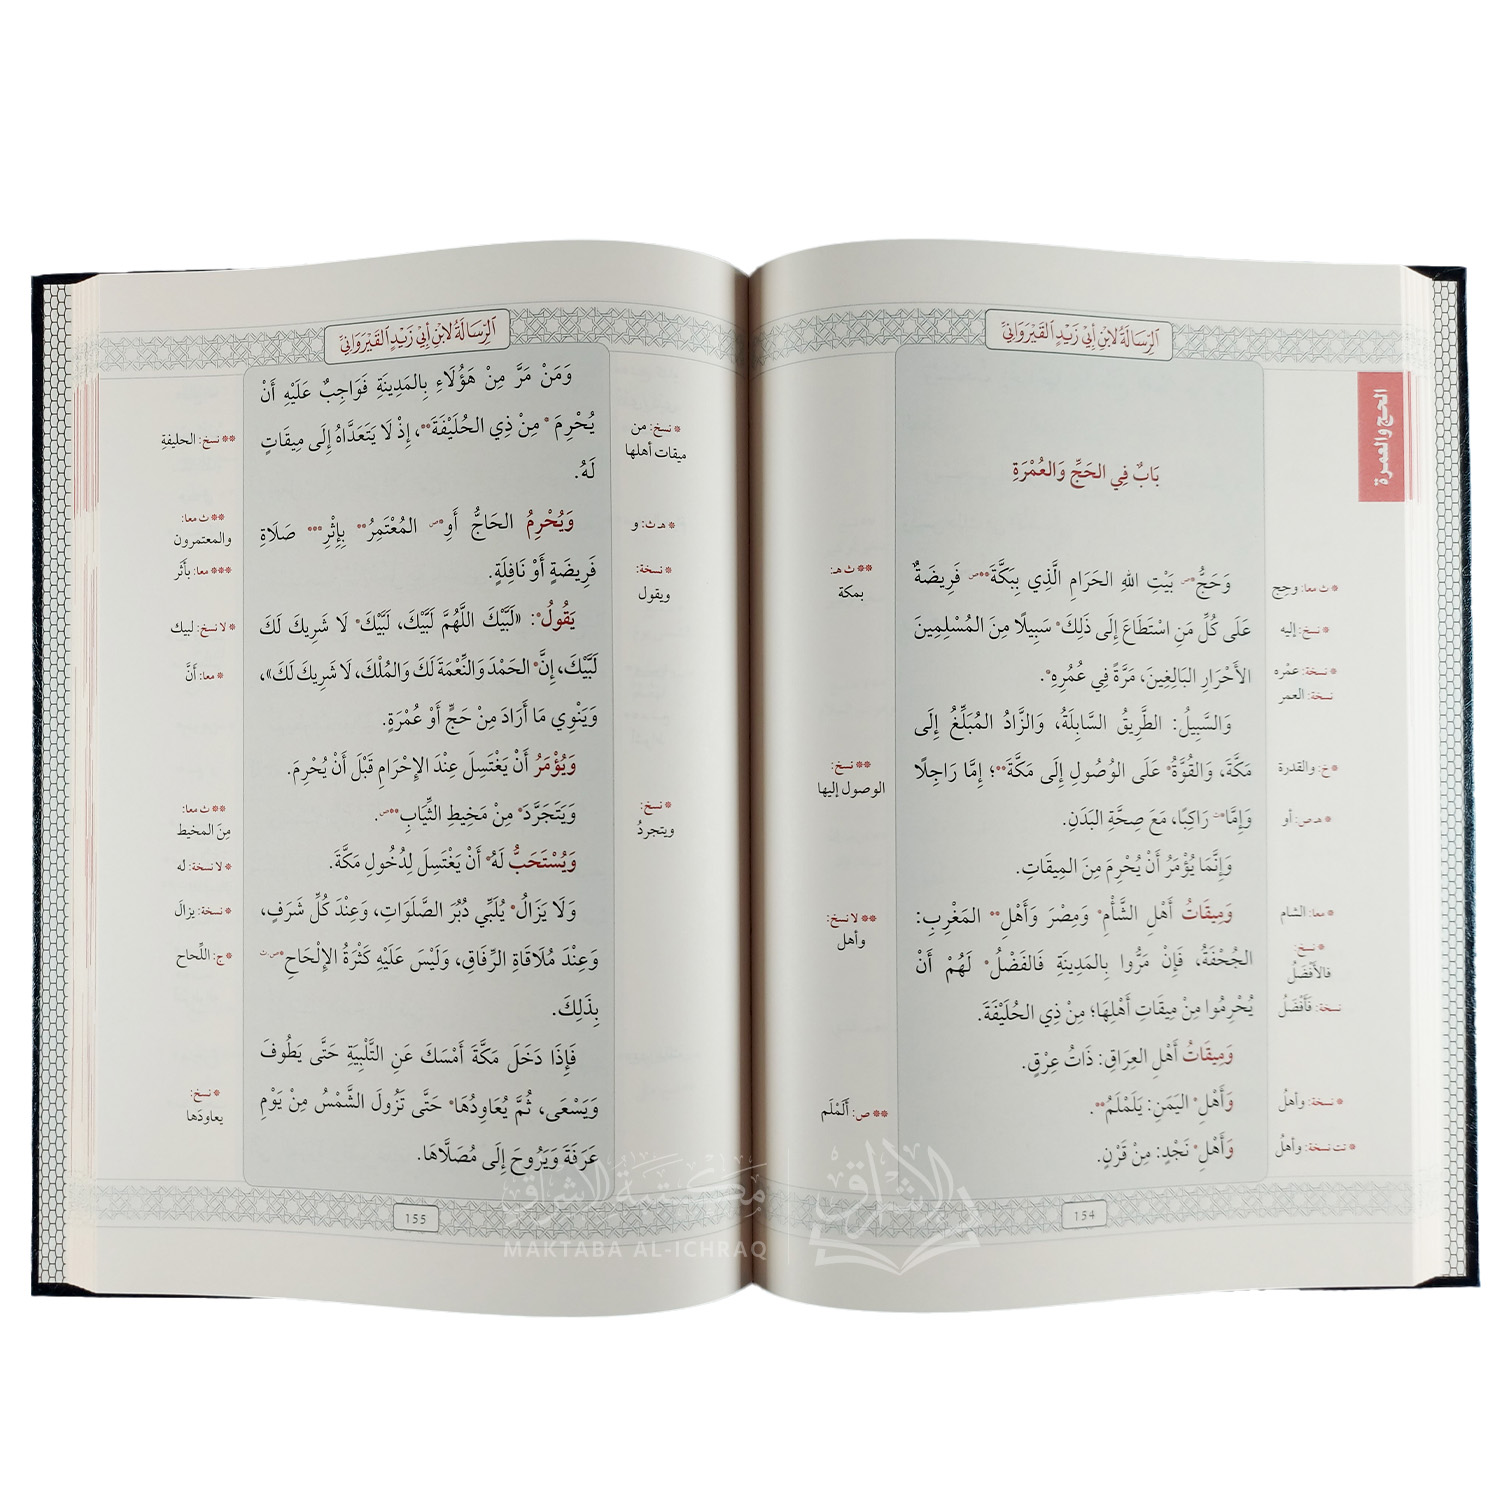 الرِّسَالَةُ لِابْنِ أَبِي زَيْدٍ القَيْرَوَانِيِّ
الحج والعمرة
بَابٌ فِي الحَجِّ وَالعُمْرَةِ
وَحَجُّ*ص بَيْتِ اللهِ الحَرَامِ الَّذِي بِبَكَّةَ**ص فَرِيضَةٌ
عَلَى كُلِّ مَنِ اسْتَطَاعَ إِلَى ذَلِكَ* سَبِيلًا مِنَ المُسْلِمِينَ
الأَحْرَارِ البَالِغِينَ، مَرَّةً فِي عُمُرِهِ*.
وَالسَّبِيلُ: الطَّرِيقُ السَّابِلَةُ، وَالزَّادُ المُبَلِّغُ إِلَى
مَكَّةَ، وَالقُوَّةُ* عَلَى الوُصُولِ إِلَى مَكَّةَ**؛ إِمَّا رَاجِلًا
وَإِمَّا* رَاكِبًا، مَعَ صِحَّةِ البَدَنِ.
وَإِنَّمَا يُؤْمَرُ أَنْ يُحْرِمَ مِنَ المِيقَاتِ.
وَمِيقَاتُ أَهْلِ الشَّأْمِ* وَمِصْرَ وَأَهْلِ** المَغْرِبِ:
الجُحْفَةُ، فَإِنْ مَرُّوا بِالمَدِينَةِ فَالفَضْلُ* لَهُمْ أَنْ
يُحْرِمُوا مِنْ مِيقَاتِ أَهْلِهَا؛ مِنْ ذِي الحُلَيْفَةَ.
وَمِيقَاتُ أَهْلِ العِرَاقِ: ذَاتُ عِرْقٍ.
وَأَهْلِ* اليَمَنِ: يَلَمْلَمُ**.
وَأَهْلِ* نَجْدٍ: مِنْ قَرْنٍ.
* ث معا: وحِج
* نسخ: إليه
* نسخة: عمْره
نسخة: العمر
* خ: والقدرة
* هـ ص: أو
* معا: الشام
* نسخ:
فالأفْضَلُ
نسخة: فَأَفْضَلُ
* نسخة: وأهلُ
* تت نسخة: وأهلُ
** ث هـ:
بمكة
** نسخ:
الوصول إليها
** لا نسخ:
وأهل
** ص: أَلَمْلَم
154
الرِّسَالَةُ لِابْنِ أَبِي زَيْدٍ القَيْرَوَانِيِّ
وَمَنْ مَرَّ مِنْ هَؤُلَاءِ بِالمَدِينَةِ فَوَاجِبٌ عَلَيْهِ أَنْ
يُحْرِمَ* مِنْ ذِي الحُلَيْفَةَ**، إِذْ لَا يَتَعَدَّاهُ إِلَى مِيقَاتٍ
لَهُ.
وَيُحْرِمُ الحَاجُّ أَوِ*ص المُعْتَمِرُ** بِإِثْرِ*** صَلَاةِ
فَرِيضَةٍ أَوْ نَافِلَةٍ.
يَقُولُ*: «لَبَّيْكَ اللَّهُمَّ لَبَّيْكَ، لَبَّيْكَ* لَا شَرِيكَ لَكَ
لَبَّيْكَ، إِنَّ* الحَمْدَ وَالنِّعْمَةَ لَكَ وَالمُلْكَ، لَا شَرِيكَ لَكَ»،
وَيَنْوِي مَا أَرَادَ مِنْ حَجٍّ أَوْ عُمْرَةٍ.
وَيُؤْمَرُ أَنْ يَغْتَسِلَ عِنْدَ الإِحْرَامِ قَبْلَ أَنْ يُحْرِمَ.
وَيَتَجَرَّدَ* مِنْ مَخِيطِ الثِّيَابِ**ص.
وَيُسْتَحَبُّ لَهُ* أَنْ يَغْتَسِلَ لِدُخُولِ مَكَّةَ.
وَلَا يَزَالُ* يُلَبِّي دُبُرَ الصَّلَوَاتِ، وَعِنْدَ كُلِّ شَرَفٍ،
وَعِنْدَ مُلَاقَاةِ الرِّفَاقِ، وَلَيْسَ عَلَيْهِ كَثْرَةُ الإِلْحَاحِ*
بِذَلِكَ.
فَإِذَا دَخَلَ مَكَّةَ أَمْسَكَ عَنِ التَّلْبِيَةِ حَتَّى يَطُوفَ
وَيَسْعَى، ثُمَّ يُعَاوِدُهَا* حَتَّى تَزُولَ الشَّمْسُ مِنْ يَوْمِ
عَرَفَةَ وَيَرُوحَ إِلَى مُصَلَّاهَا.
* نسخ: من
ميقات أهلها
* هـ ث: و
* نسخة:
ويقول
* نسخ:
ويتجردُ
** نسخ: الحليفةِ
** ث معا:
والمعتمرون
*** معا: بأَثَر
* لا نسخ: لبيك
* معا: أَنَّ
** ث معا:
مِنَ المخيط
* لا نسخة: له
* نسخة: يزالَ
* ج: اللِّحاح
* نسخ:
يعاودَها
155
مكتبة الإشراق
MAKTABA AL-ICHRAQ
الإشراق